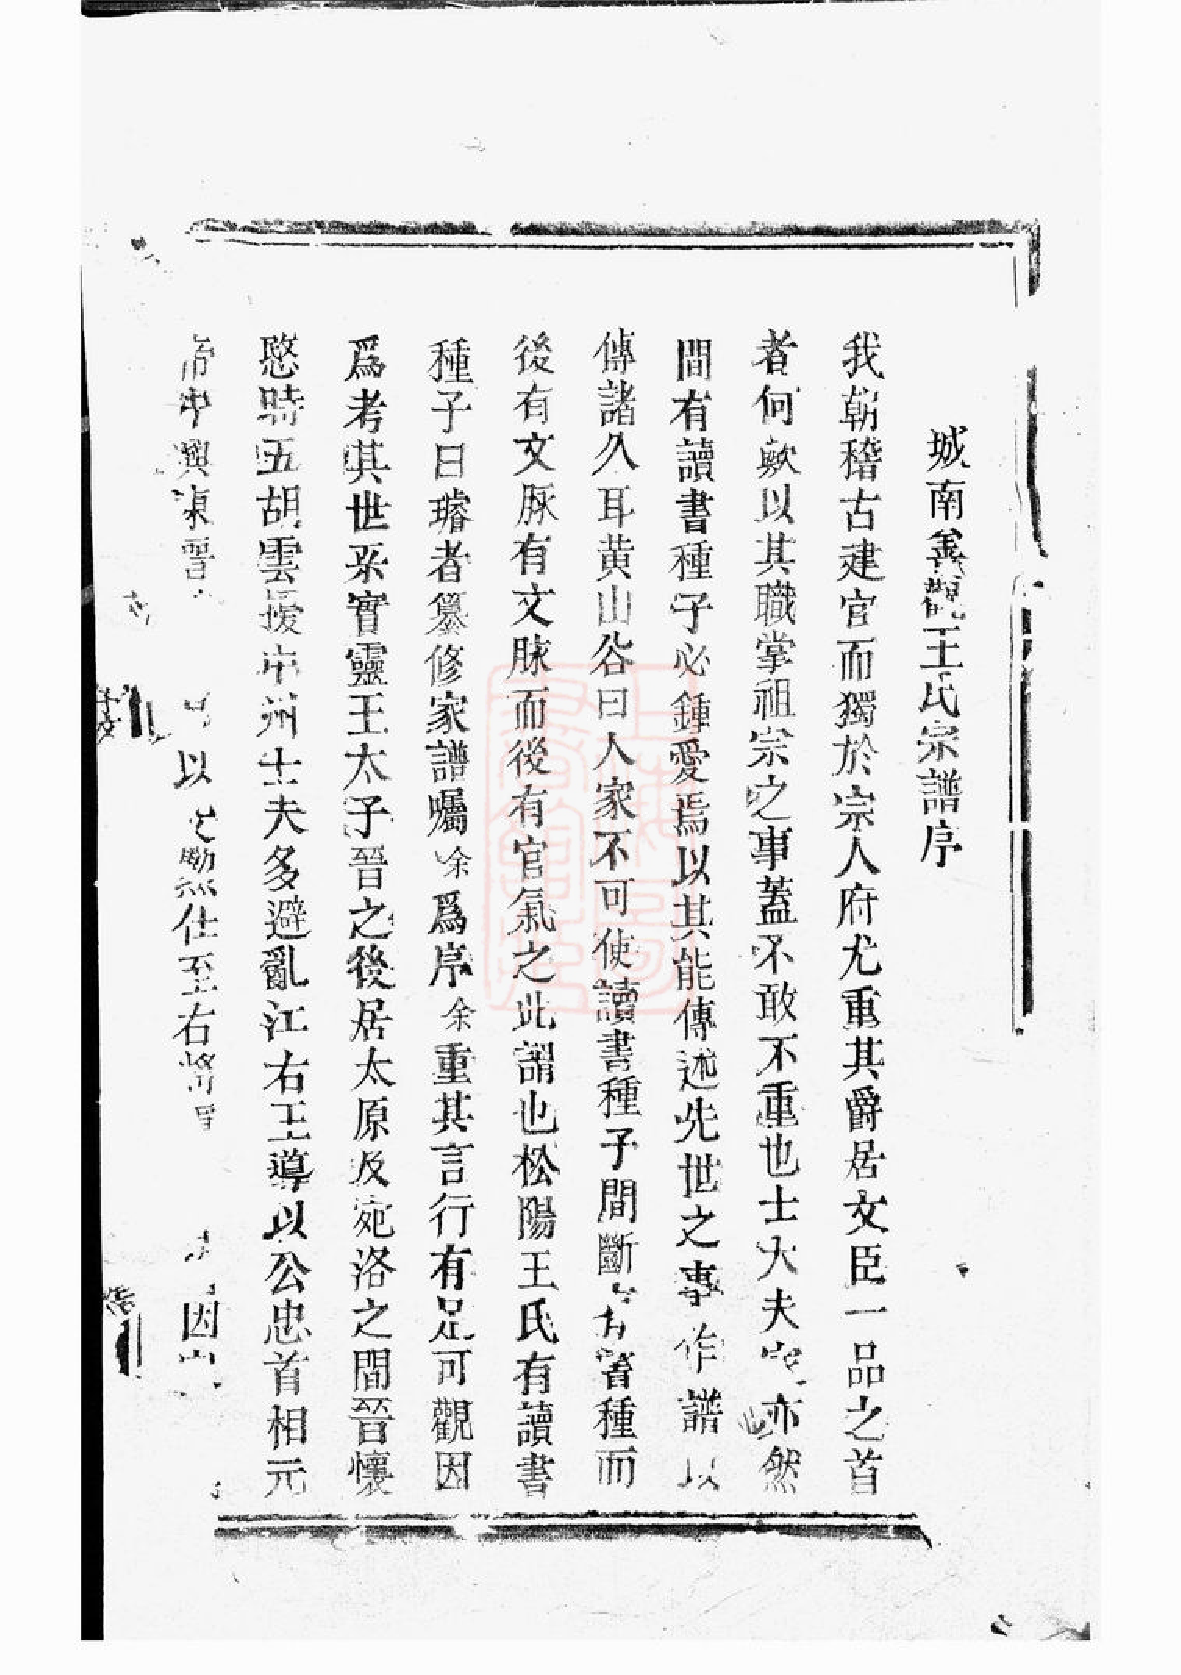 城南善觀王氏宗譜序
我朝稽古建官而獨於宗人府尤重其爵居文臣一品之首
者何歟以其職掌祖宗之事蓋不敢不重也士大夫家亦然
間有讀書種子必鍾愛焉以其能傳述先世之事作譜以
傳諸久耳黄山谷曰人家不可使讀書種子間斷有書種而
後有文脉有文脉而後有官氣之此謂也松陽王氏有讀書
種子曰璿者纂修家譜囑余爲序余重其言行有足可觀因
爲考其世系實靈王太子晉之後居太原及宛洛之間晉懷
愍時五胡雲擾中州士夫多避亂江右王導以公忠首相元
帝中興東晉以仕至右將因